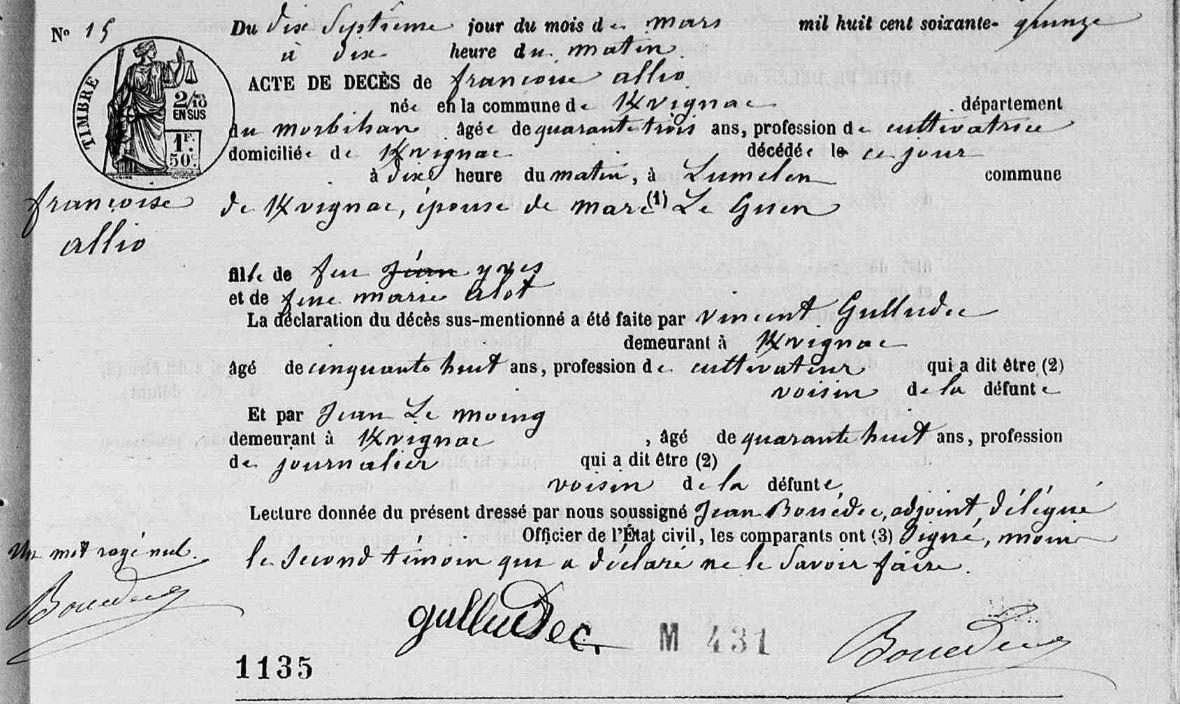 N° 15
Du dix Septième jour du mois de mars mil huit cent soixante-quinze
à dix heure du matin
ACTE DE DECÈS de françoise allio
née en la commune de Kvignac département
du morbihan âgée de quarante trois ans, profession de cultivatrice
domiciliée de Kvignac décédée le ce jour
à dixe heure du matin, à Lumelen commune
de Kvignac, épouse de marc (1) Le Guen
TIMBRE
2/10
EN SUS
1 F.
50 c.
françoise
allio
fille de feu Jean yves
et de feue marie alot
La déclaration du décès sus-mentionné a été faite par vincent Gulludec
demeurant à Kvignac
âgé de cinquante huit ans, profession de cultivateur qui a dit être (2)
voisin de la défunte
Et par Jean Le moing
demeurant à Kvignac, âgé de quarante huit ans, profession
de journalier qui a dit être (2)
voisin de la défunte
Lecture donnée du présent dressé par nous soussigné Jean Bouëdec, adjoint, délégué
Officier de l'État civil, les comparants ont (3) Signé, moin
le second témoin qui a déclaré ne le Savoir faire.
Un mot rayé nul.
Bouedec
gulludec.
M 431
Bouedec
1135